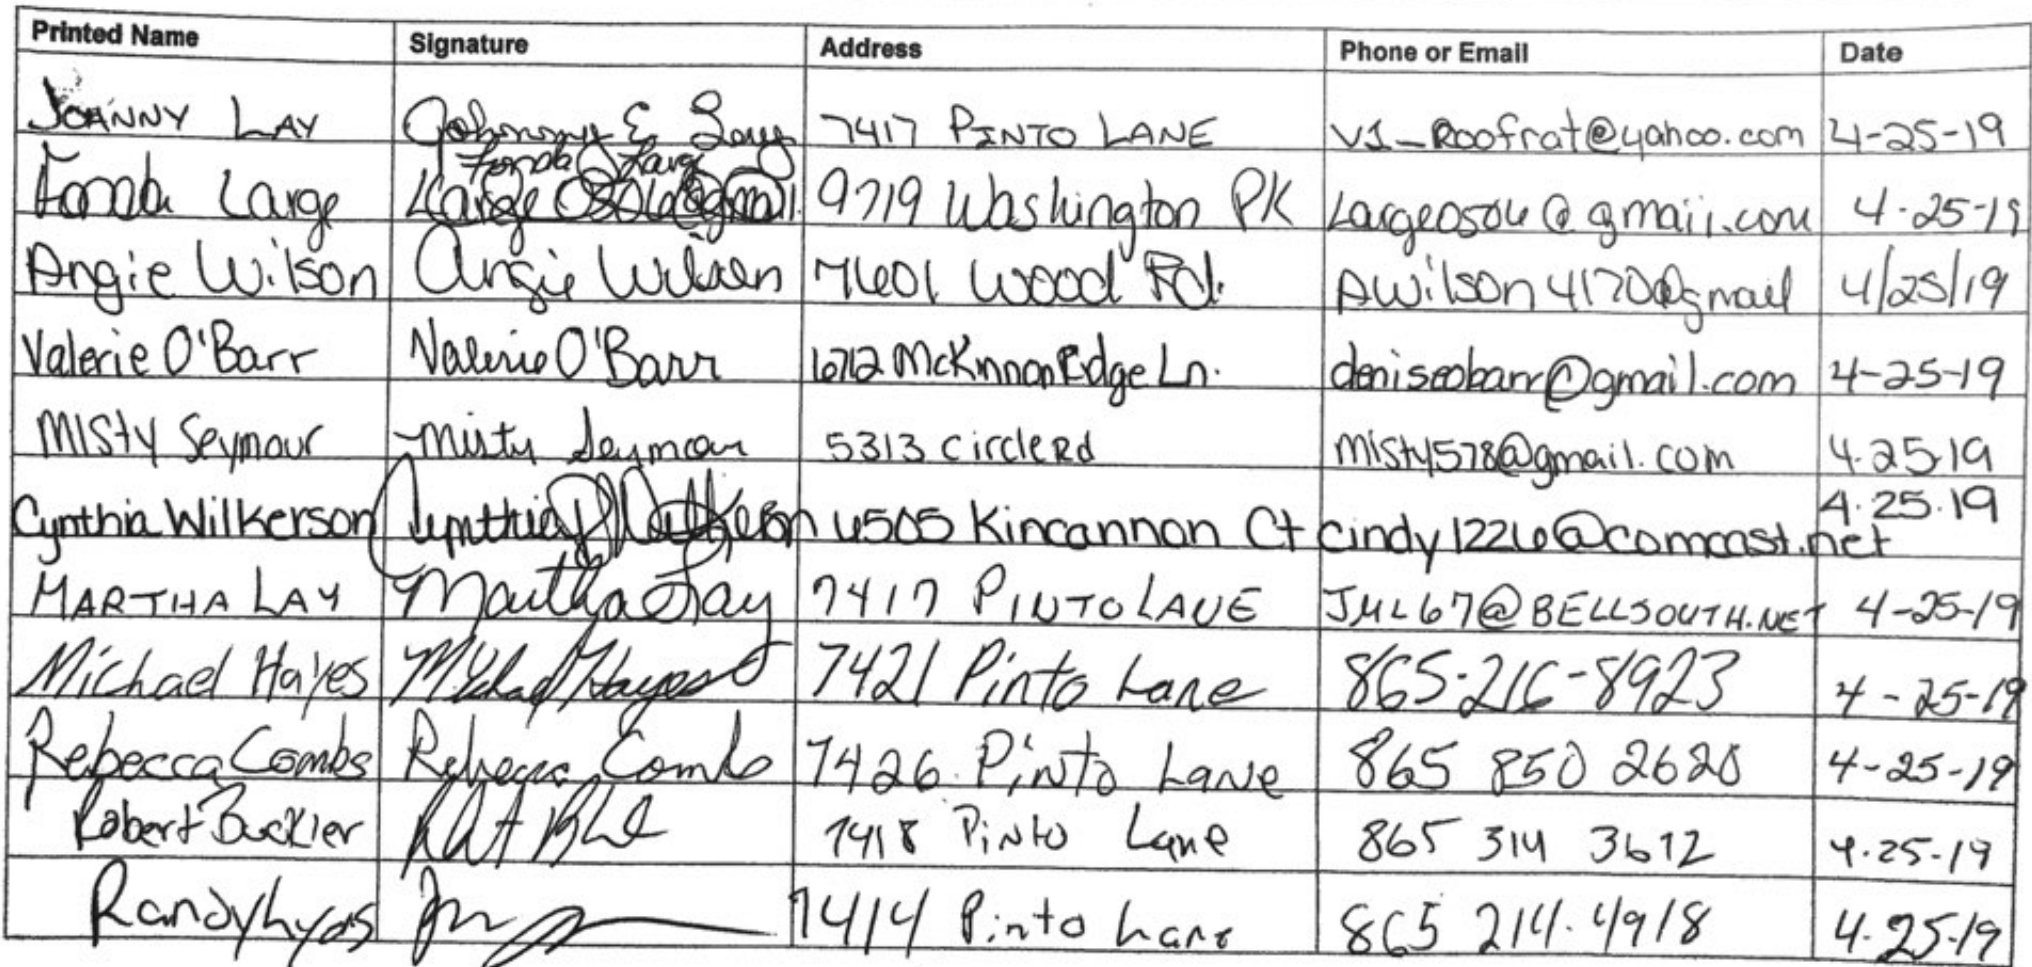 Printed Name Signature Address Phone or Email Date
JOHNNY LAY Johnny E Lay 7417 PINTO LANE V1_Roofrat@yahoo.com 4-25-19
Fonda Large
Fonda Large 9719 Washington PK 4-25-19
Angie Wilson Angie Wilson 7601 Wood Rd. AWilson4170@gmail 4/25/19
Valerie O'Barr Valerie O'Barr 6712 McKinnon Ridge Ln. deniseobarr@gmail.com 4-25-19
Misty Seymour Misty Seymour 5313 Circle Rd misty1578@gmail.com 4.25.19
Cynthia Wilkerson Cynthia Wilkerson 6505 Kincannon Ct cindy1226@comcast.net 4.25.19
MARTHA LAY Martha Lay 7417 PINTO LANE JML67@BELLSOUTH.NET 4-25-19
Michael Hayes Michael Hayes 7421 Pinto Lane 865-216-8923 4-25-19
Rebecca Combs Rebecca Combs 7426 Pinto Lane 865 850 2620 4-25-19
Robert Buckler 7418 Pinto Lane 865 314 3612 4.25-19
Randy Lyas 7414 Pinto Lane 865 214.4918 4.25-19